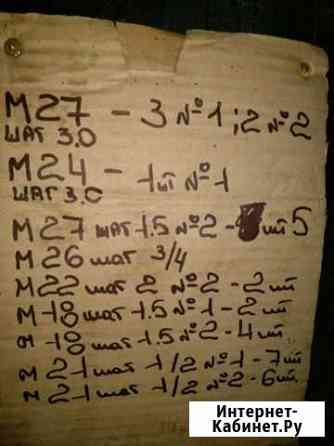 М27 - 3 №1; 2 №2
ШАГ 3.0
М24 - 1шт №1
ШАГ 3.0
М27 шаг 1.5 №2 - шт 5
М26 шаг 3/4
М22 шаг 2 №2 - 2 шт
М18 шаг 1.5 №1 - 2 шт
М 18 шаг 1.5 №2 - 4 шт.
М 21 шаг 1/2 №1 - 7 шт
М 21 шаг 1/2 №2 - 6 шт.
Интернет-
Кабинет.Ру